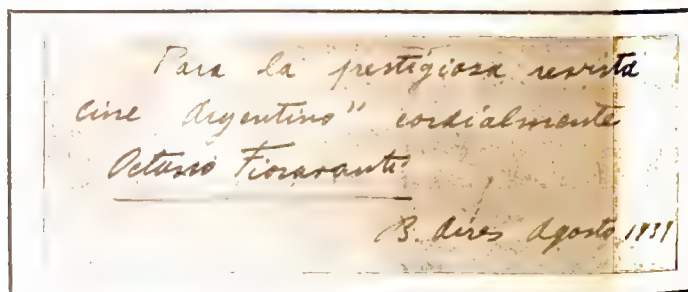 Para la prestigiosa revista
cine Argentino" cordialmente
Octavio Fioravanti
B. Aires Agosto 1939